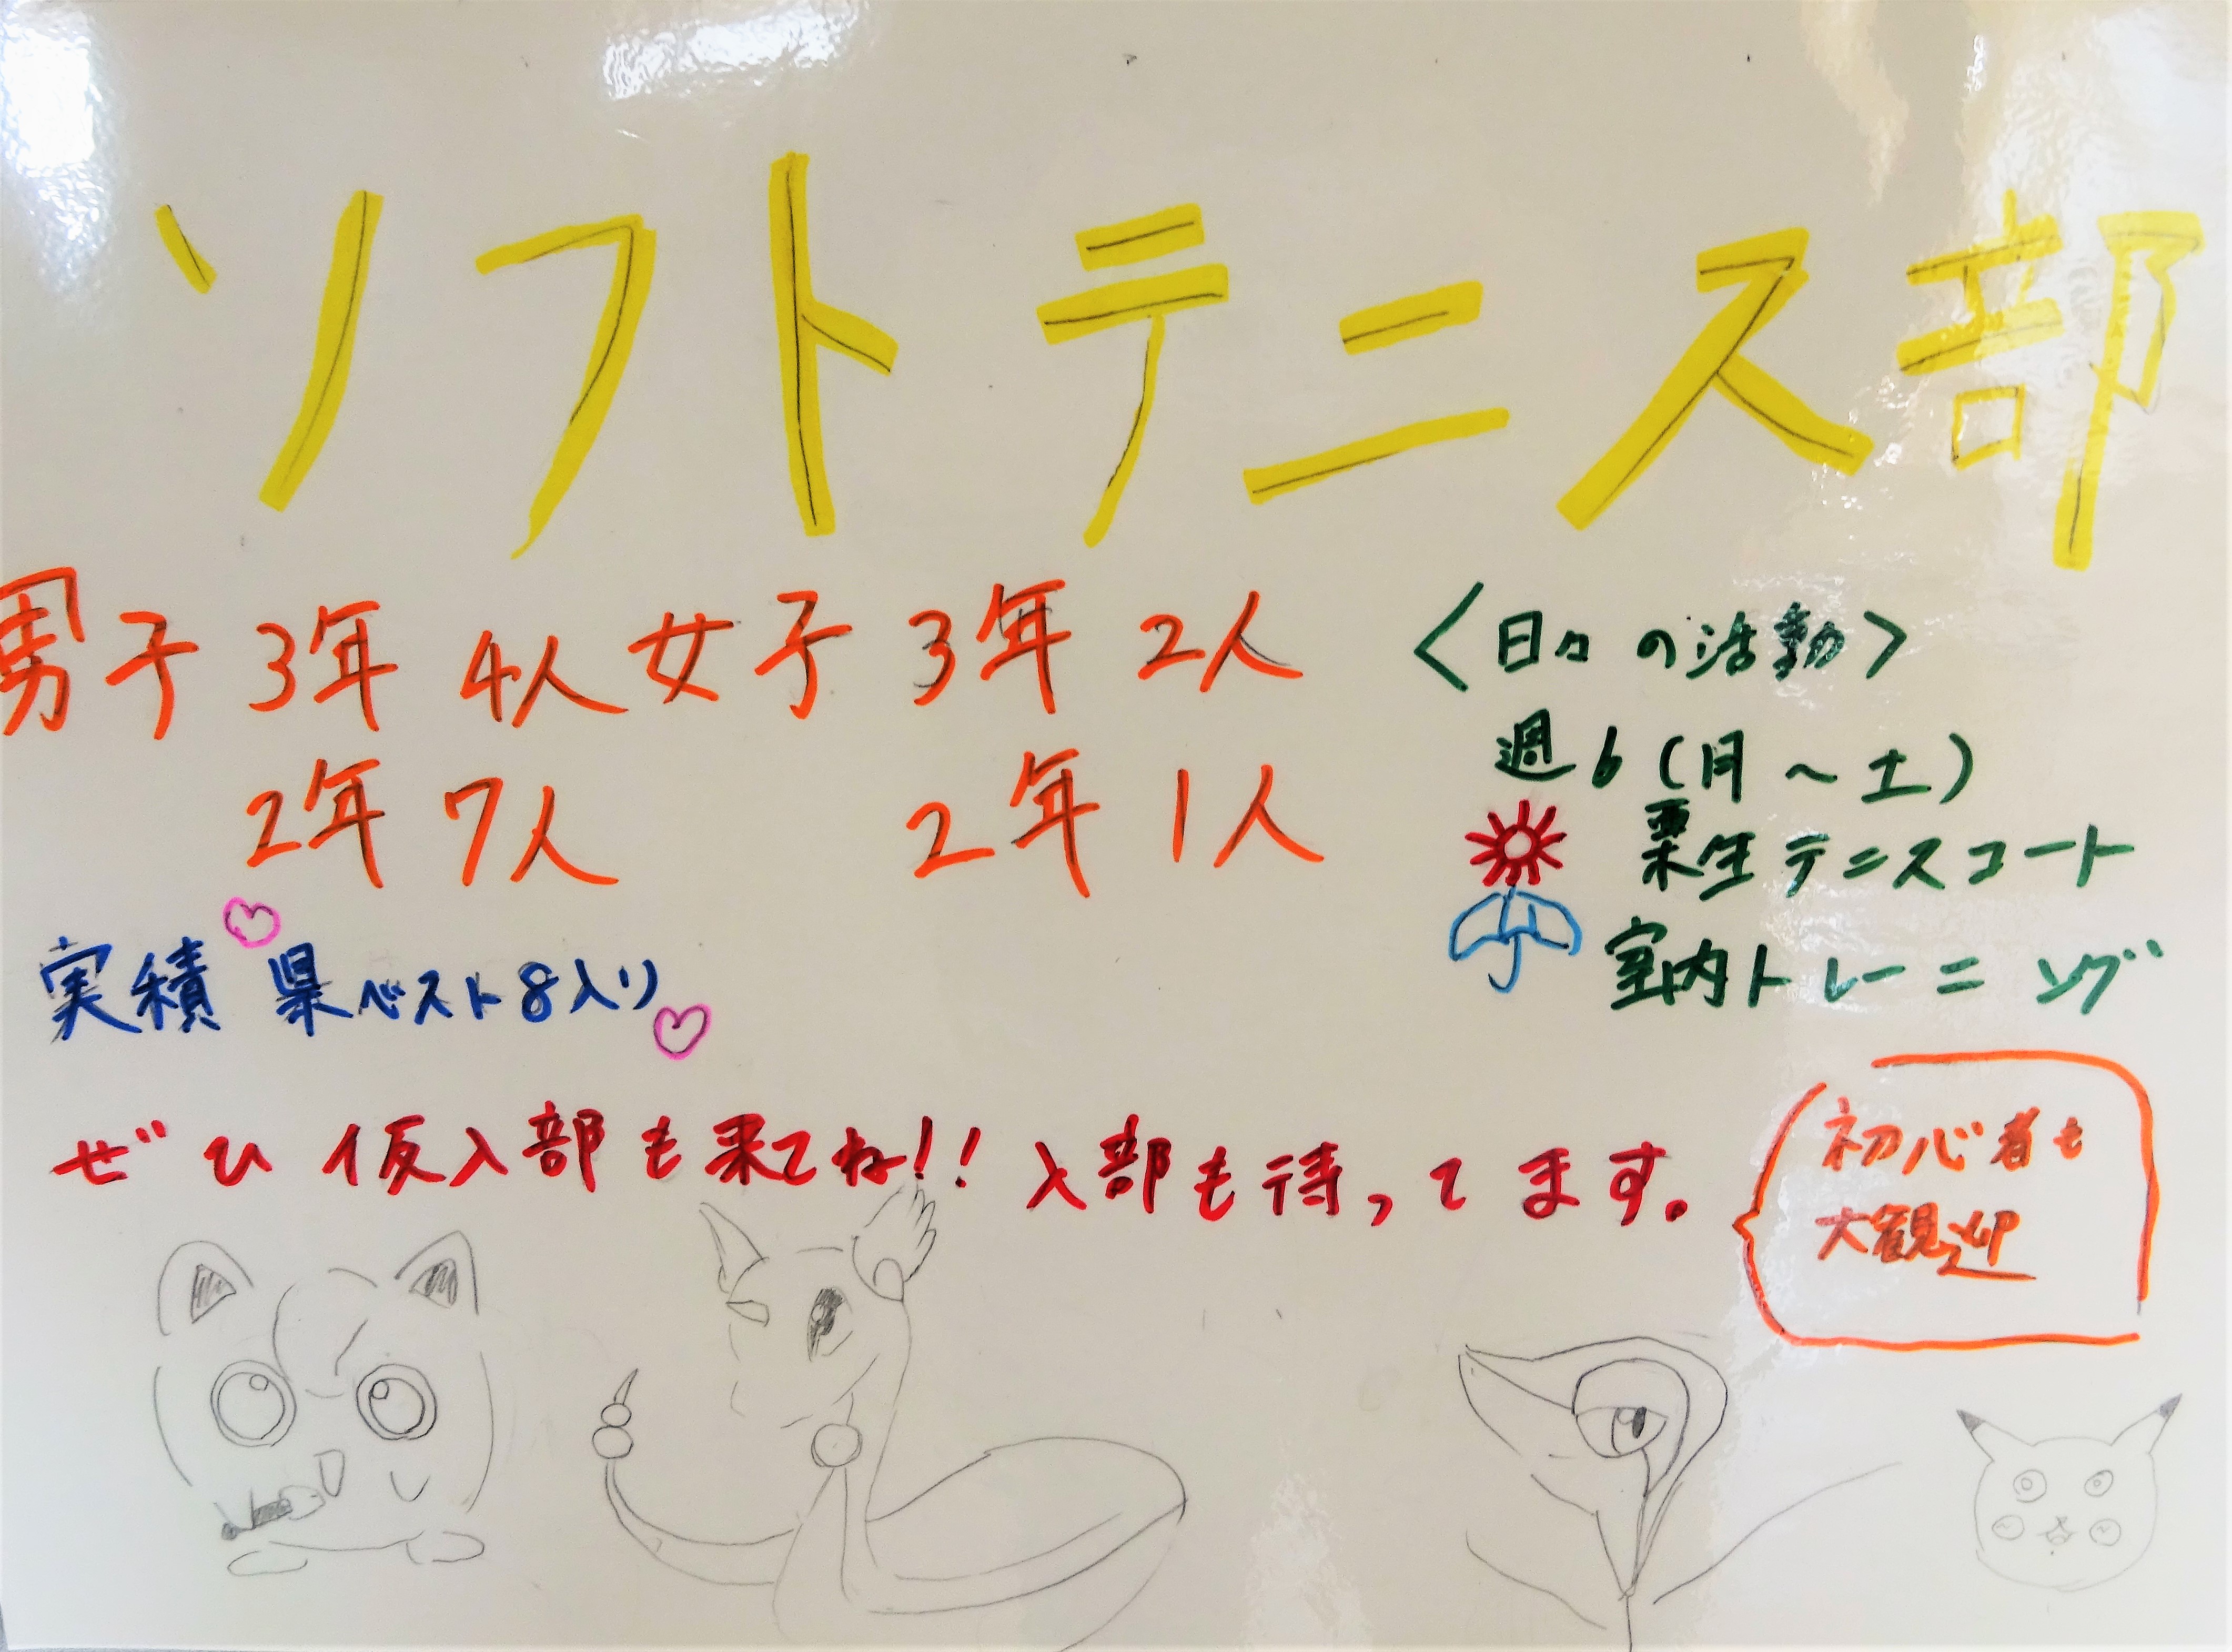 ソフトテニス部
男子 3年 4人 女子 3年 2人
2年 7人 2年 1人
〈日々の活動〉
週6(月〜土)
粟生テニスコート
室内トレーニング
実積 県ベスト8入り
ぜひ仮入部も来てね!! 入部も待ってます。
初心者も
大観迎